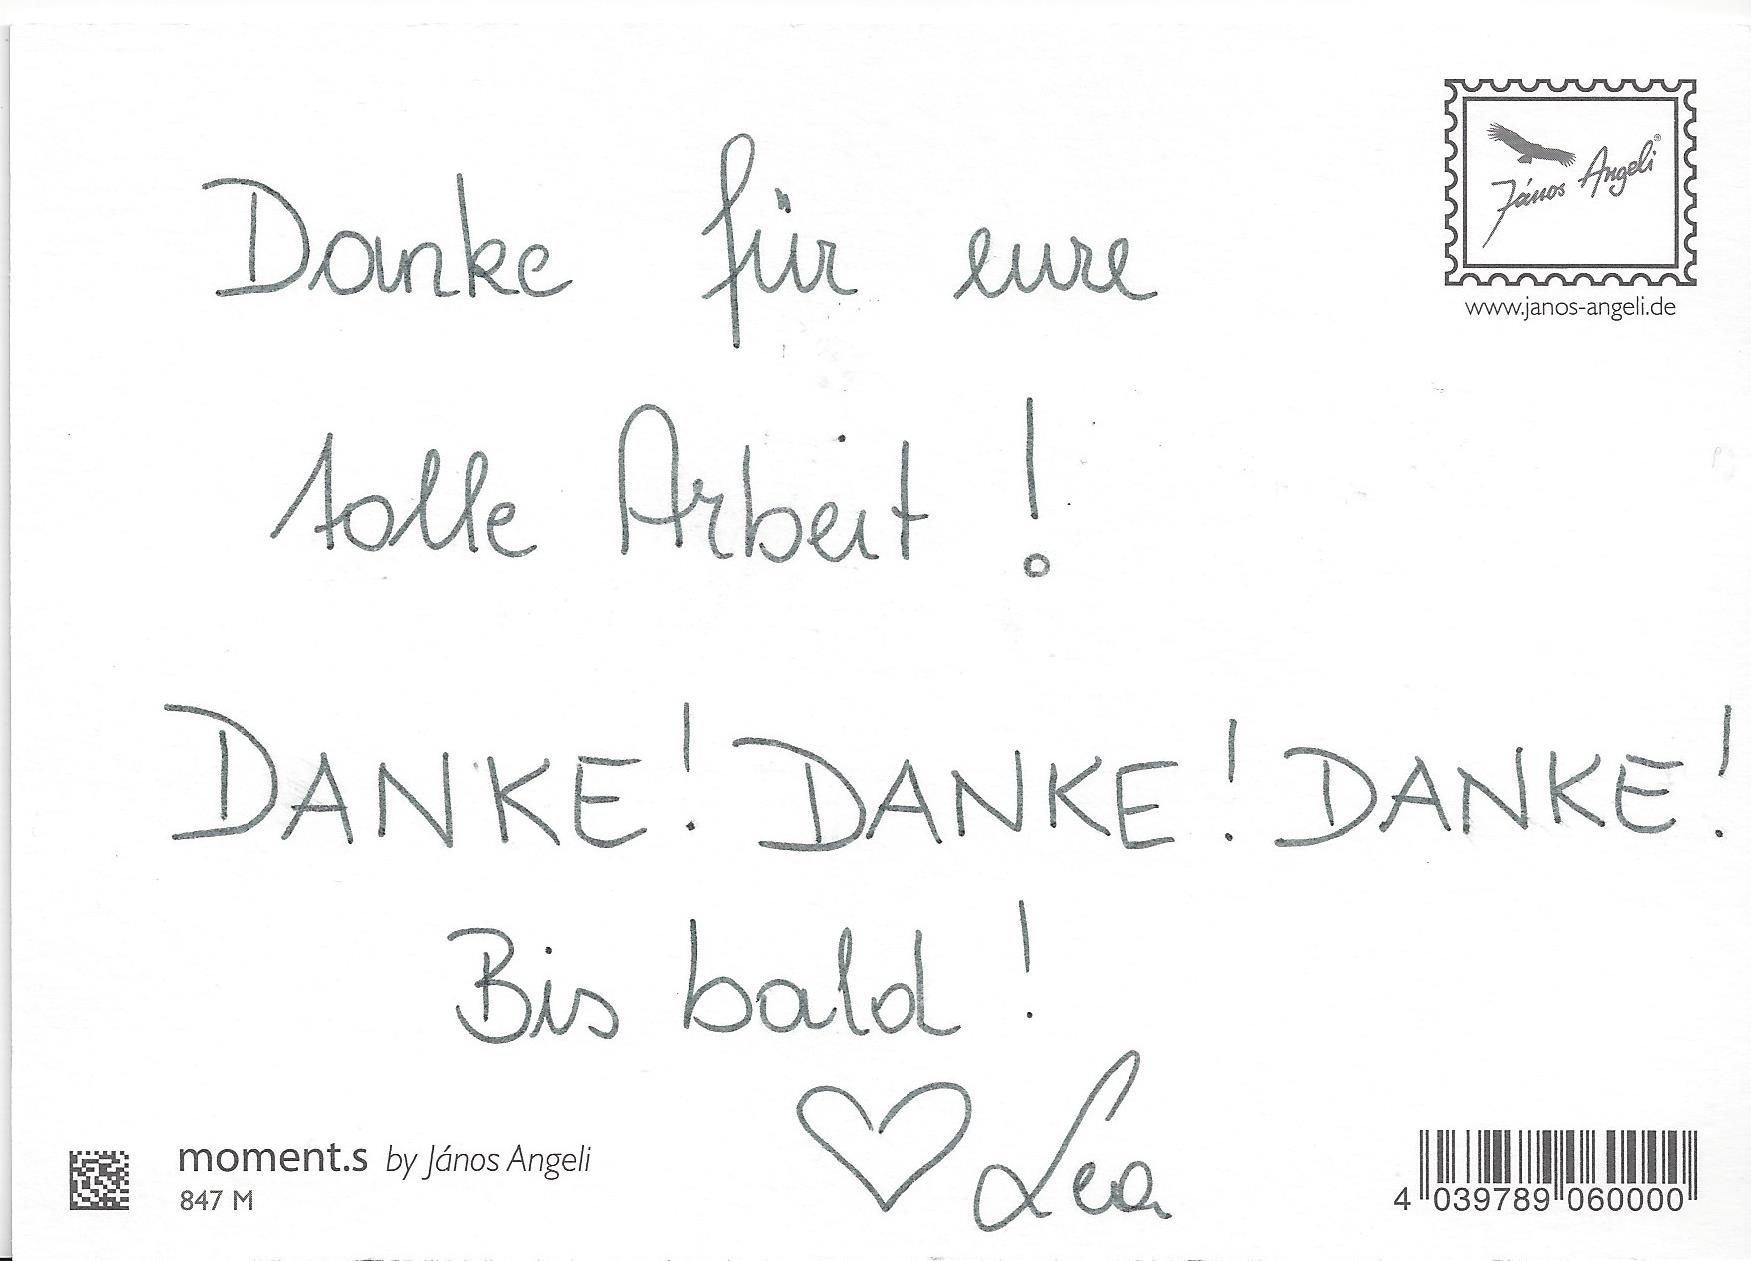 Danke für eure
tolle Arbeit!
DANKE! DANKE! DANKE!
Bis bald!
♡ Lea
János Angeli®
www.janos-angeli.de
moment.s by János Angeli
847 M
4 039789 060000